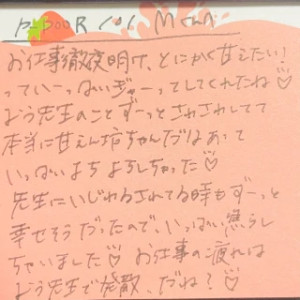 お仕事徹夜明け、とにかく甘えたい!
っていーっぱいぎゅーってしてくれたね♡
よう先生のことずーっとさわさわしてて
本当に甘えん坊ちゃんだなあって
いっぱいよちよちしちゃった♡
先生にいじわるされてる時もずーっと
幸せそうだったので、いっぱい焦らし
ちゃいました♡ お仕事の疲れは
よう先生で発散、だね?♡